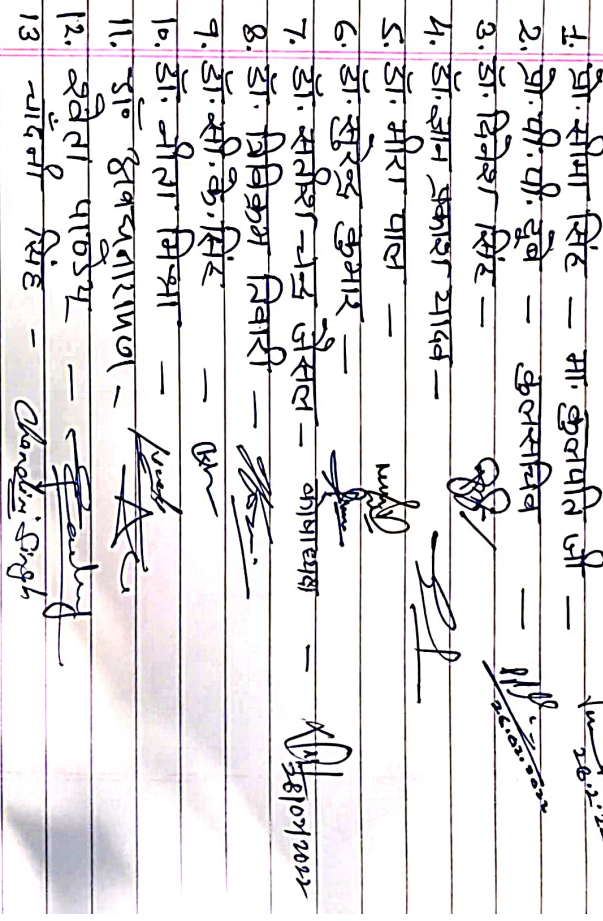 1. प्रो. सीमा सिंह — मा. कुलपति जी — 26.2.22
2. प्रो. पी. पी. दुबे — कुलसचिव — 26.02.2022
3. डॉ. दिनेश सिंह —
4. डॉ. ज्ञान प्रकाश यादव —
5. डॉ. मीरा पाल —
6. डॉ. सुरेन्द्र कुमार —
7. डॉ. सतेश चन्द्र जैसल — कोषाध्यक्ष — 26/02/2022
8. डॉ. त्रिविक्रम तिवारी —
9. डॉ. सी. के. सिंह —
10. डॉ. नीता मिश्रा —
11. डॉ० —
12. श्वेता पाण्डेय —
13 चांदनी सिंह - Chandni Singh